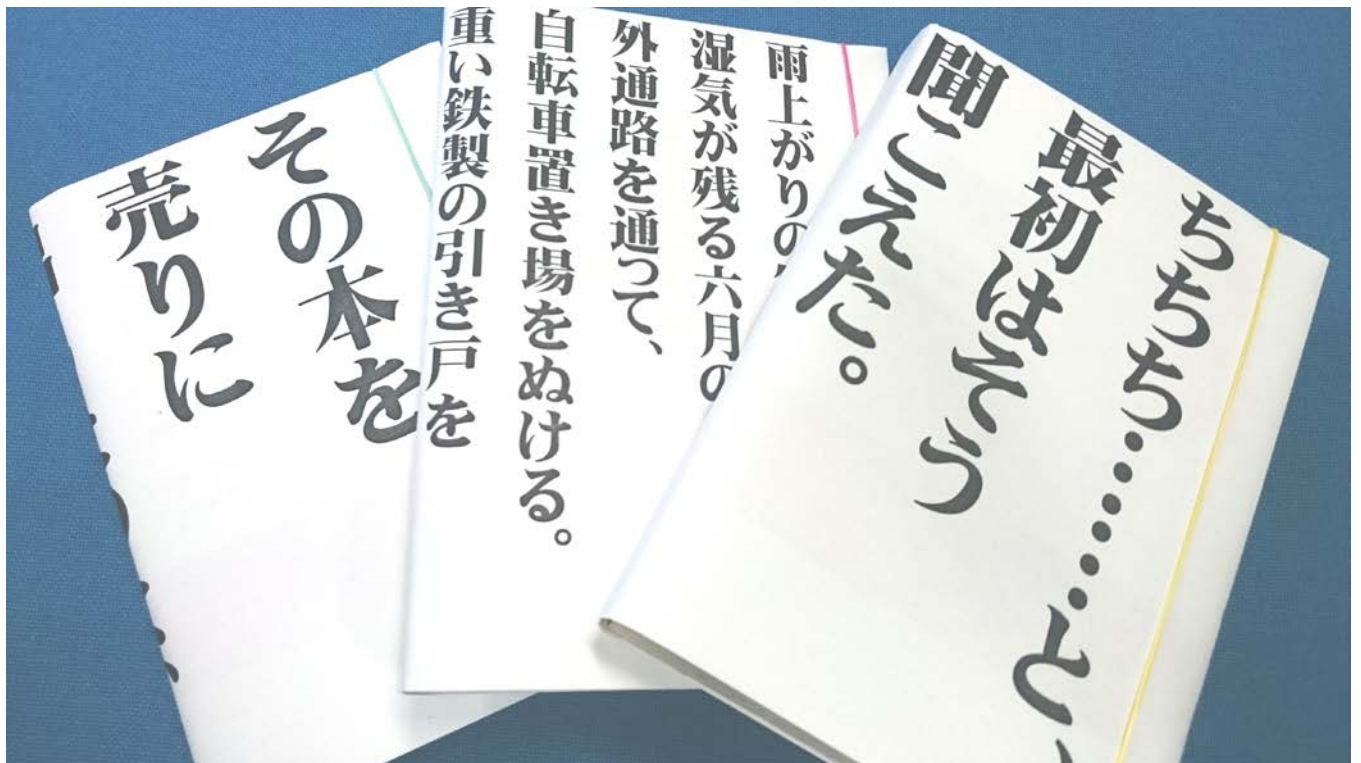 その本を
売りに
雨上がりの
湿気が残る六月の
外通路を通って、
自転車置き場をぬける。
重い鉄製の引き戸を
ちちち………と、
最初はそう
聞こえた。